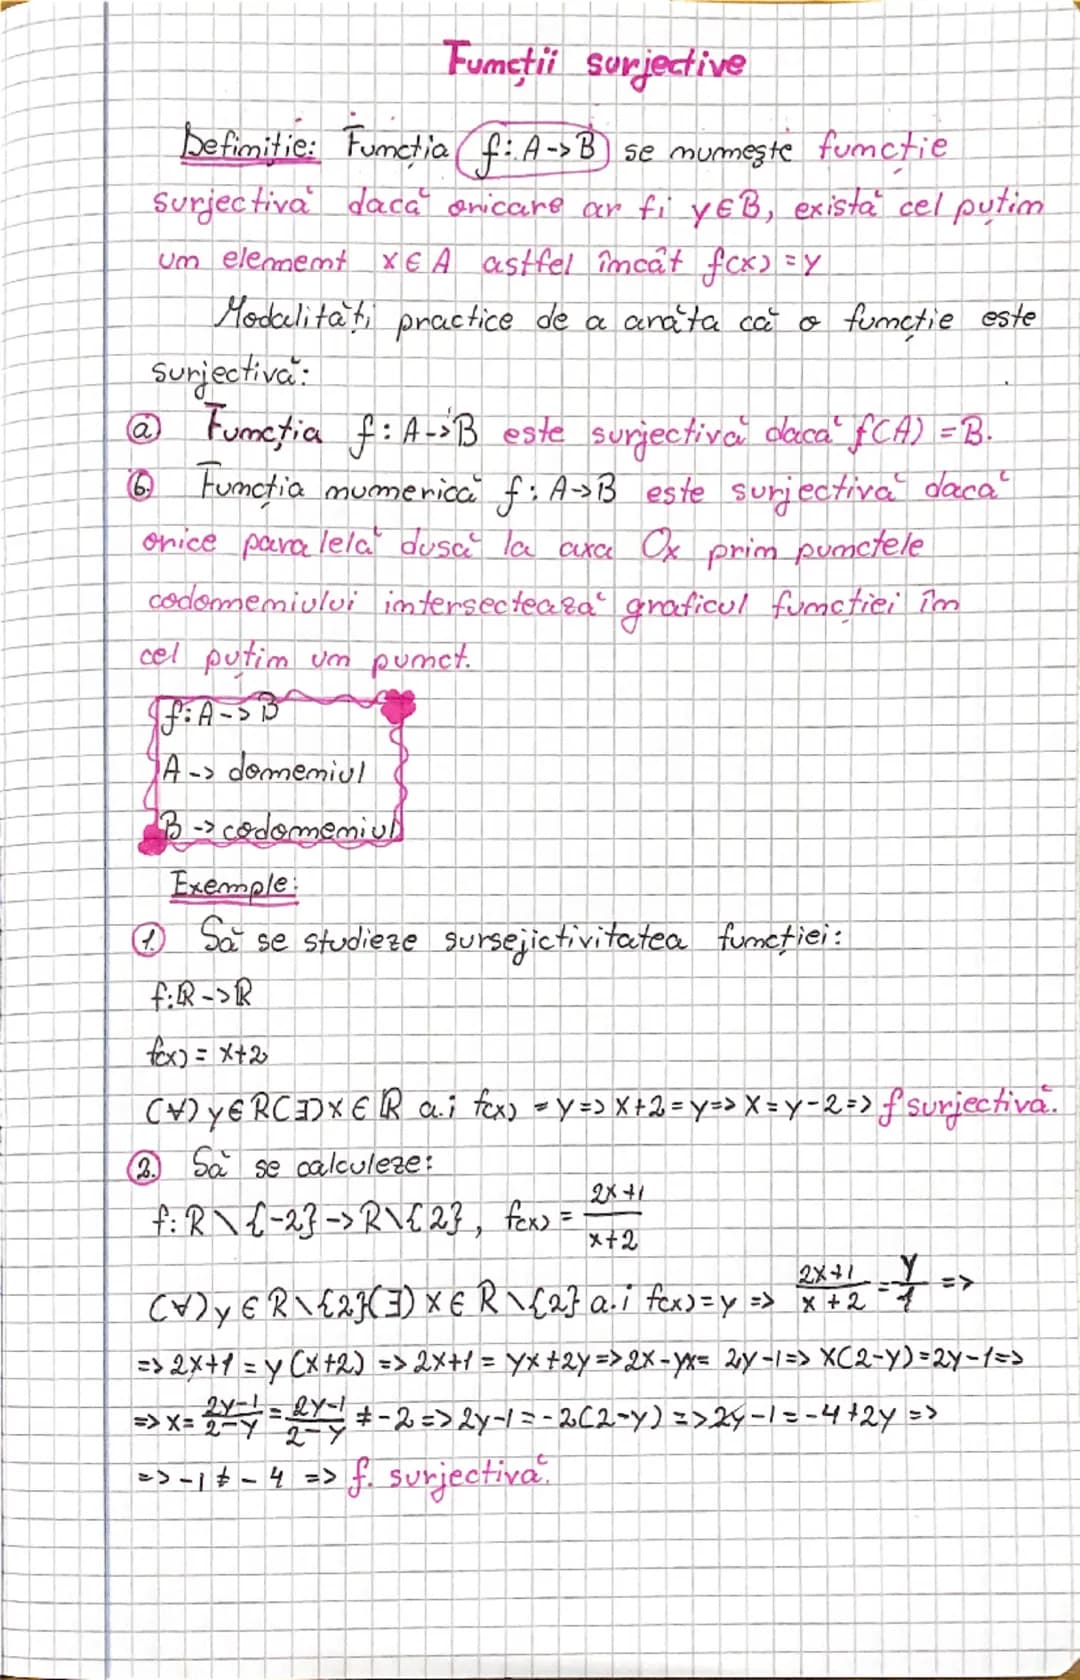 Funcții surjective
Definiție: Funcția f: A -> B se numește funcție
surjectivă dacă oricare ar fi y∈B, există cel puțin
un element x∈A astfel încât f(x) = y
Modalități practice de a arăta că o funcție este
surjectivă:
a) Funcția f: A -> B este surjectivă dacă f(A) = B.
b. Funcția numerică f: A -> B este surjectivă dacă
orice paralelă dusă la axa Ox prin punctele
codomeniului intersectează graficul funcției în
cel puțin un punct.
f: A -> B
A -> domeniul
B -> codomeniul
Exemple:
1. Să se studieze sursejictivitatea funcției:
f: ℝ -> ℝ
f(x) = x+2
(∀) y∈R (∃) x∈ℝ a.i f(x) = y => x+2 = y => x = y-2 => f surjectivă.
2. Să se calculeze:
f: R \ {-2} -> R \ {2}, f(x) = (2x+1)/(x+2)
(∀) y∈R \ {2} (∃) x∈R \ {2} a.i f(x) = y => (2x+1)/(x+2) = y/1 =>
=> 2x+1 = y(x+2) => 2x+1 = yx+2y => 2x-yx = 2y-1 => x(2-y) = 2y-1 =>
=> x = (2y-1)/(2-y) = (2y-1)/(2-y) ≠ -2 => 2y-1 = -2(2-y) => 2y-1 = -4+2y =>
=> -1 ≠ -4 => f. surjectivă.